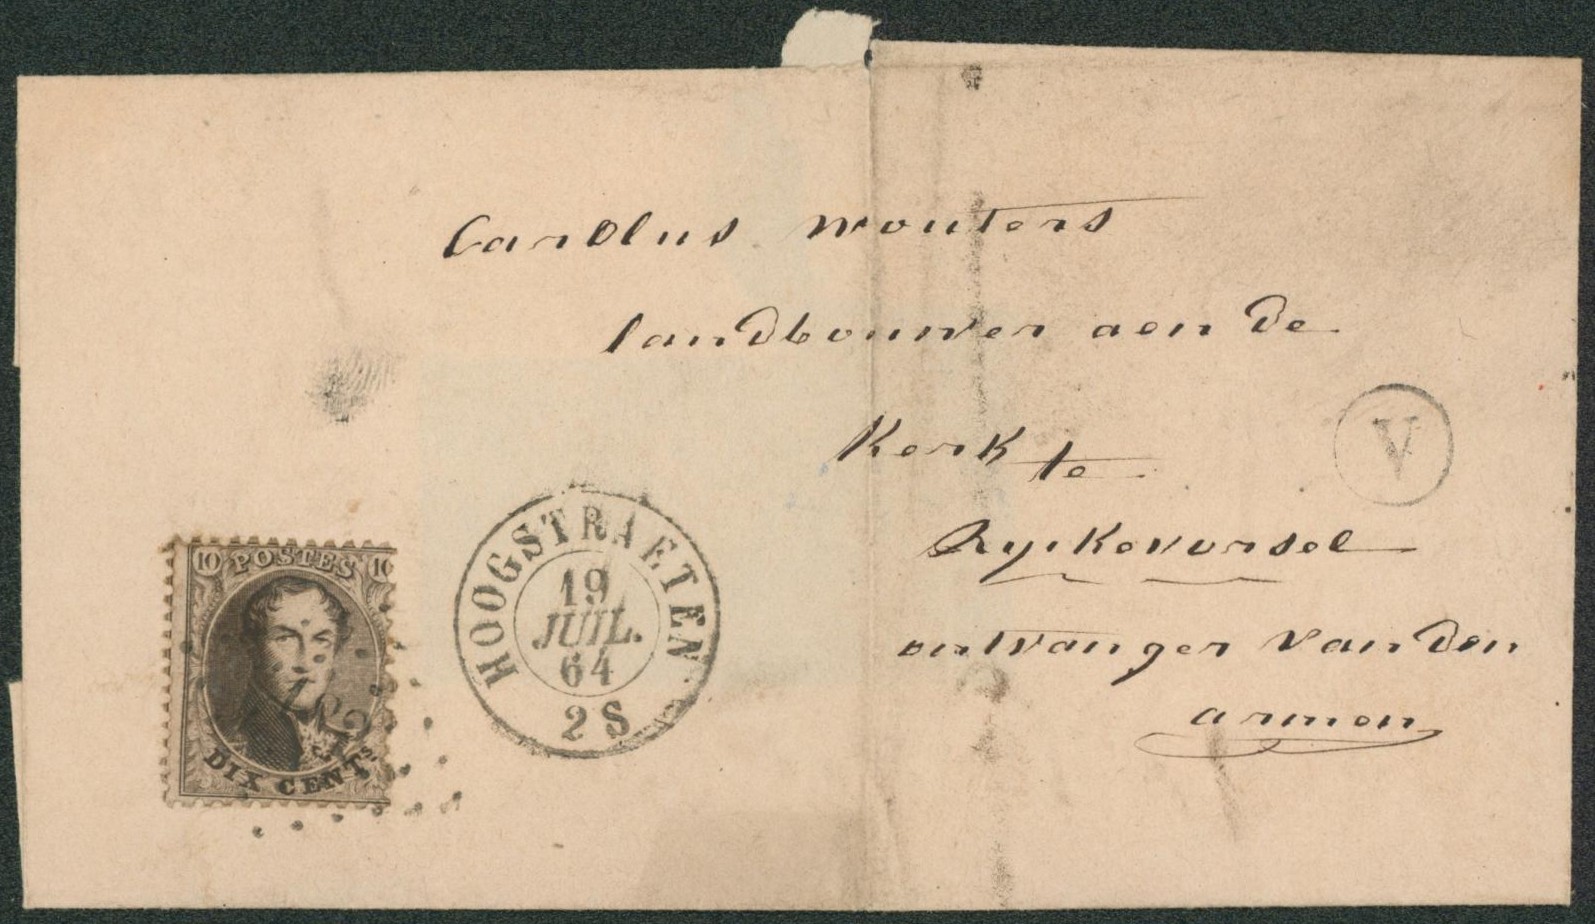 Carolus Wouters
landbouwer aen de
Kerk te
V
Ryckevorsel
ontvanger van den
armen
10 POSTES 10
DIX CENTS
HOOGSTRAETEN
19
JUIL.
64
2 S